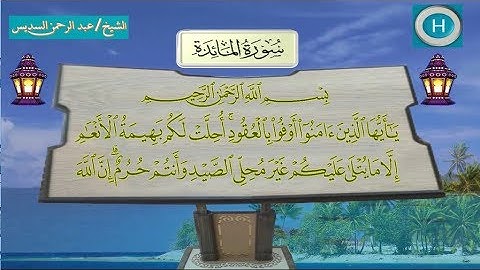 الشيخ/عبد الرحمن السديس
H
سُورَةُ المَائِدَة
بِسْمِ اللَّهِ الرَّحْمَٰنِ الرَّحِيمِ
يَٰٓأَيُّهَا ٱلَّذِينَ ءَامَنُوٓا۟ أَوْفُوا۟ بِٱلْعُقُودِ ۚ أُحِلَّتْ لَكُم بَهِيمَةُ ٱلْأَنْعَٰمِ
إِلَّا مَا يُتْلَىٰ عَلَيْكُمْ غَيْرَ مُحِلِّى ٱلصَّيْدِ وَأَنتُمْ حُرُمٌ ۗ إِنَّ ٱللَّهَ